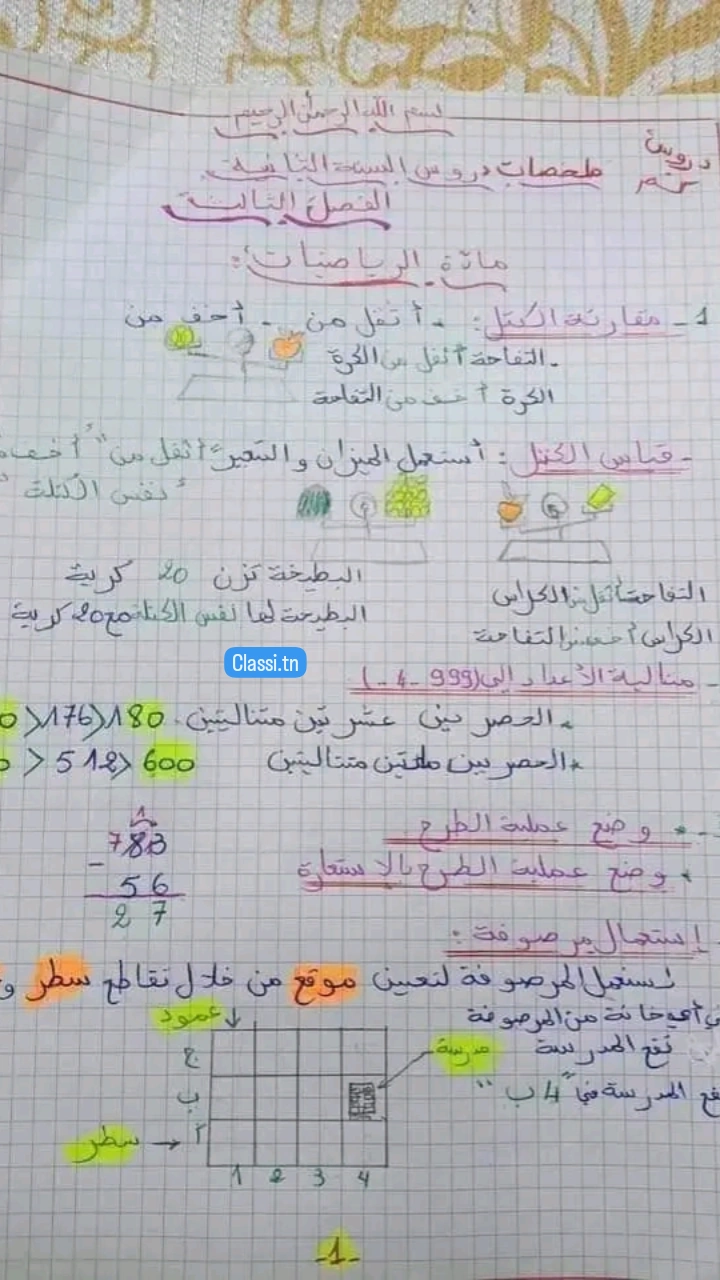 بسم الله الرحمن الرحيم
دروس
ملخصات دروس السنة الثانية
الفصل الثالث
مادة الرياضيات:
1 - مقارنة الكتل: . أثقل من - أخف من
. التفاحة أثقل من الكرة
الكرة أخف من التفاحة
- قياس الكتل: أستعمل الميزان والتعبير "أثقل من" "أخف
"نفس الكتلة"
البطيخة تزن 20 كرية
التفاحة أثقل من الكراس
البطيخة لها نفس الكتلة مع 20 كرية
الكراس أخف من التفاحة
Classi.tn
- متتالية الأعداد إلى (999 - 4 -)
. الحصر بين عشرتين متتاليتين. 180>176>0
* الحصر بين مئتين متتاليتين 600 < 512 <
* وضع عملية الطرح
* وضع عملية الطرح بالاستعارة
1
783
-
56
27
- إستعمال مرصوفة:
نستعمل المرصوفة لتعيين موقع من خلال تقاطع سطر و
أي خانة من المرصوفة
عمود
تقع المدرسة
مدرسة
تقع المدرسة في "4 ب"
ج
ب
أ
سطر
1 2 3 4
-1-